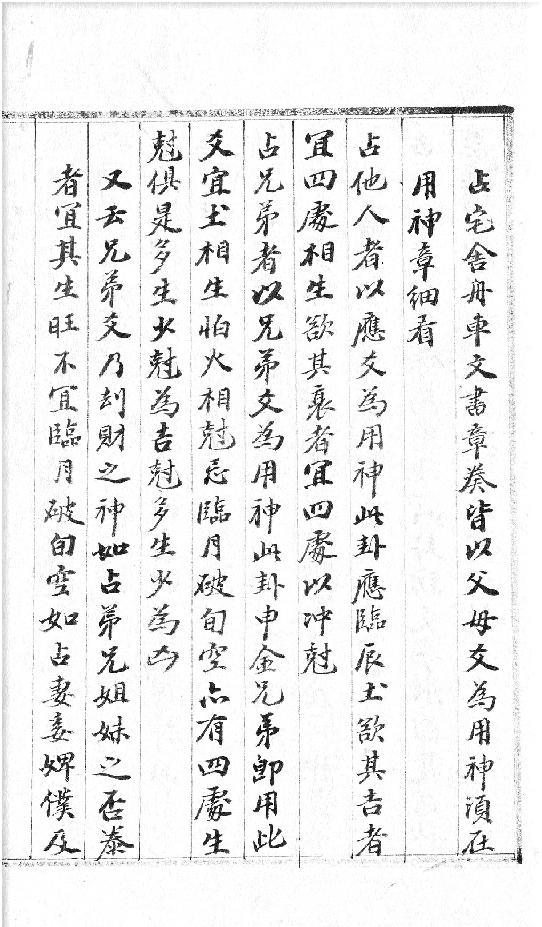 占宅舍舟車文書章奏皆以父母爻為用神須在
用神章細看
占他人者以應爻為用神此卦應臨辰土欲其吉者
宜四處相生欲其衰者宜四處以冲尅
占兄弟者以兄弟爻為用神此卦申金兄弟即用此
爻宜土相生怕火相尅忌臨月破旬空亦有四處生
尅俱是多生少尅為吉尅多生少為凶
又云兄弟爻乃刦財之神如占弟兄姐妹之否泰
者宜其生旺不宜臨月破旬空如占妻妾婢僕及